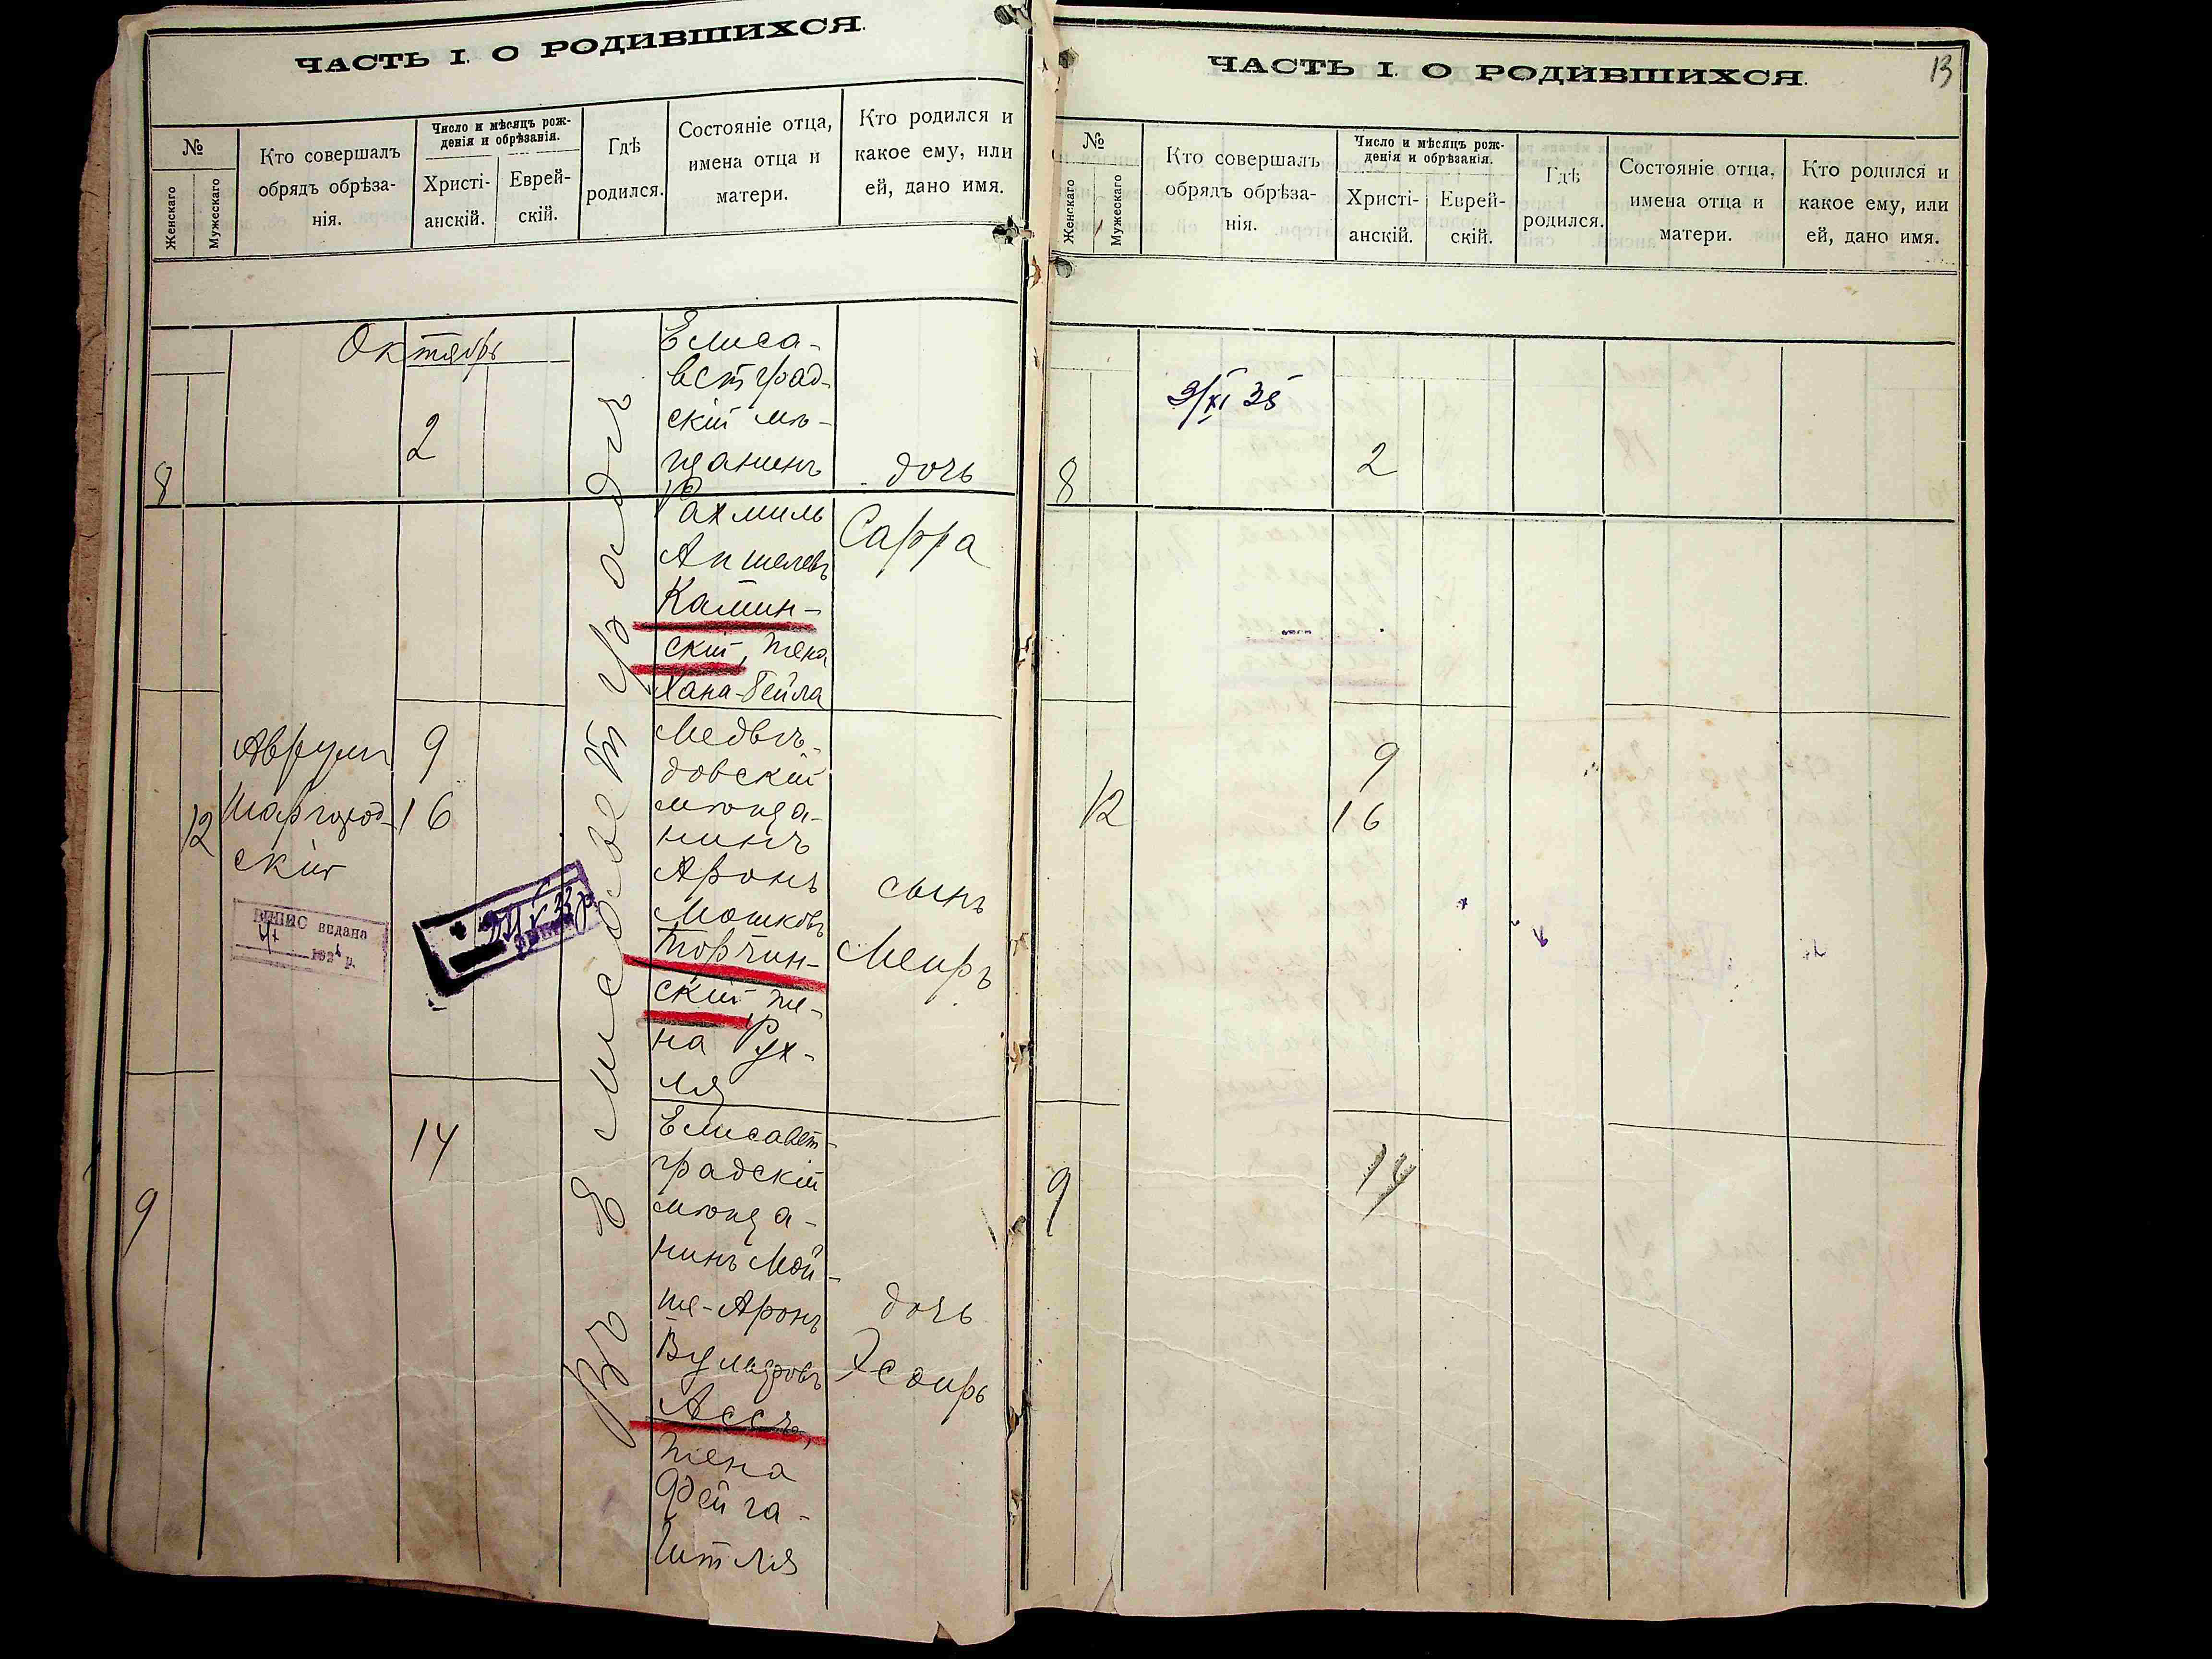 ЧАСТЬ I. О РОДИВШИХСЯ.
№
Женскаго
Мужескаго
Кто совершалъ
обрядъ обрѣза-
нія.
Число и мѣсяцъ рож-
денія и обрѣзанія.
Христі-
анскій.
Еврей-
скій.
Гдѣ
родился.
Состояніе отца,
имена отца и
матери.
Кто родился и
какое ему, или
ей, дано имя.
Октябрь
8
2
Въ Елисаветградѣ
Елиса-
ветград-
скій мѣ-
щанинъ
Рахмиль
Аншелевъ
Камин-
скій, жена
Хана-Бейла
дочь
Сарра
12
Аврумъ
Шаргород-
скій
9
16
ВИПИС видана
192 р.
Медвѣ-
довскій
мѣща-
нинъ
Аронъ
Мошковъ
Торчин-
скій, же-
на Рух-
ля
сынъ
Меиръ
9
14
Елисавет-
градскій
мѣща-
нинъ Мой-
ше-Аронъ
Вульфовъ
Ассъ,
жена
Фейга-
Гитля
дочь
Эсѳирь
ЧАСТЬ I. О РОДИВШИХСЯ.
13
№
Женскаго
Мужескаго
Кто совершалъ
обрядъ обрѣза-
нія.
Число и мѣсяцъ рож-
денія и обрѣзанія.
Христі-
анскій.
Еврей-
скій.
Гдѣ
родился.
Состояніе отца,
имена отца и
матери.
Кто родился и
какое ему, или
ей, дано имя.
3/XI 35
8
2
12
9
16
9
14